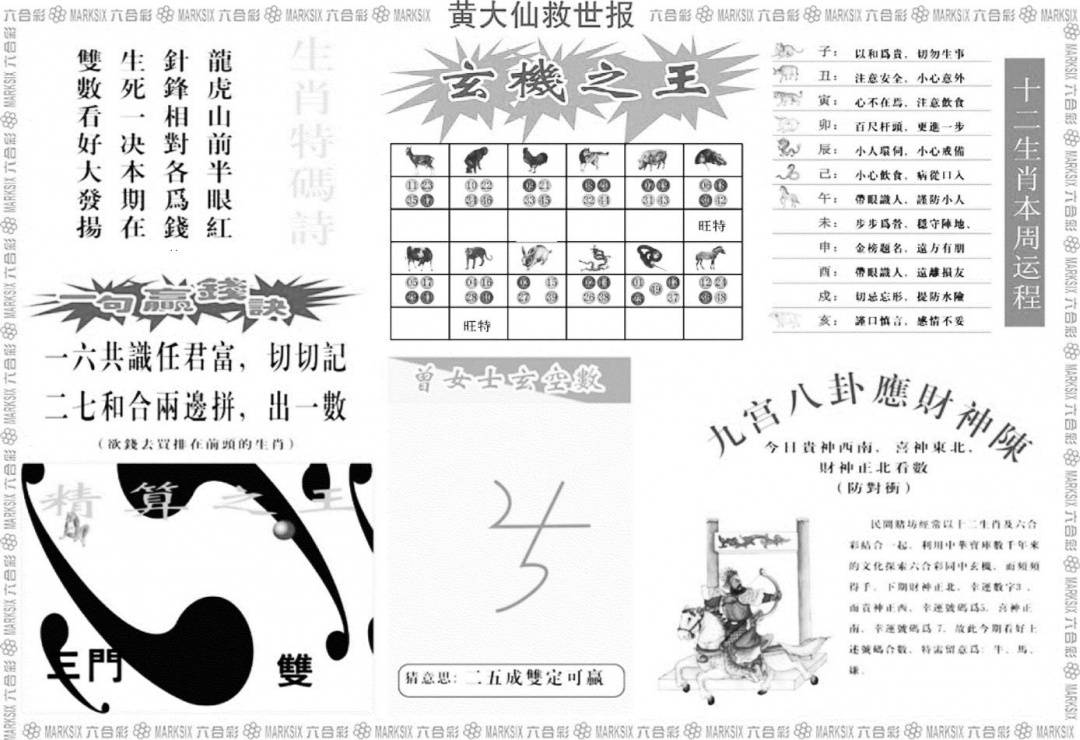 黄大仙救世报
六合彩 MARKSIX 六合彩 MARKSIX 六合彩 MARKSIX
生肖特碼詩
龍虎山前半眼紅
針鋒相對各爲錢
生死一决本期在
雙數看好大發揚
一句贏錢訣
一六共識任君富，切切記
二七和合兩邊拼，出一數
（欲錢去買排在前頭的生肖）
精算之王
三門
雙
玄機之王
旺特
旺特
曾女士玄空數
猜意思：二五成雙定可贏
十二生肖本周运程
子：以和爲貴，切勿生事
丑：注意安全，小心意外
寅：心不在焉，注意飲食
卯：百尺杆頭，更進一步
辰：小人環伺，小心戒備
巳：小心飲食，病從口入
午：帶眼識人，謹防小人
未：步步爲營，穩守陣地、
申：金榜題名，遠方有朋
酉：帶眼識人，遠離損友
戌：切忌忘形，提防水險
亥：謹口慎言，感情不妥
九宫八卦應財神陳
今日貴神西南，喜神東北，
財神正北看數
（防對衝）
民間賭坊經常以十二生肖及六合
彩結合一起，利用中華寶庫數千年來
的文化探索六合彩同中玄機，而頻頻
得手，下期財神正北，幸運數字3，
而貴神正西，幸運號碼爲5，喜神正
南，幸運號碼爲 7，故此今期看好上
述號碼合數，特需留意爲：牛、馬、